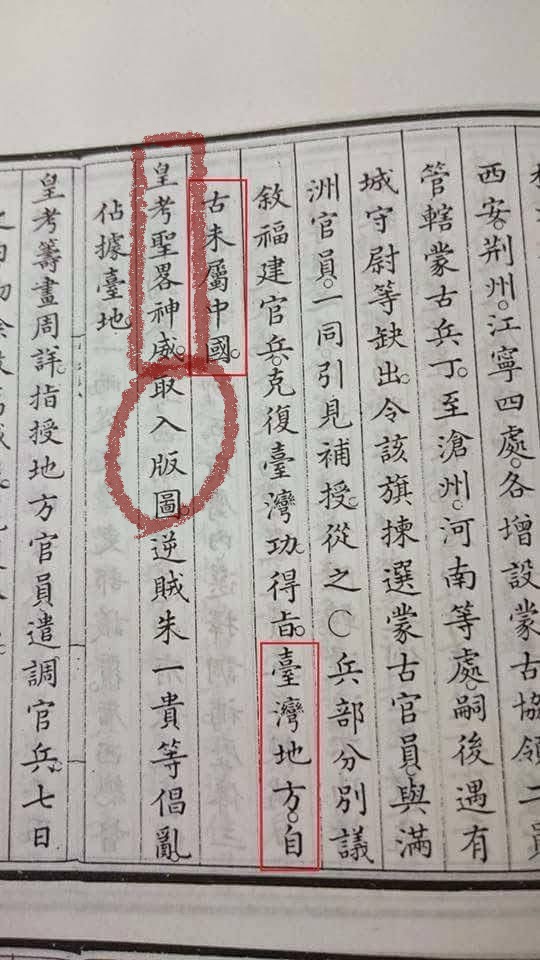 西安。荊州。江寧四處。各增設蒙古協領二員
管轄蒙古兵丁。至滄州。河南等處。嗣後遇有
城守尉等缺出。令該旗揀選蒙古官員。與滿
洲官員。一同引見補授。從之○兵部分別議
敘福建官兵。克復臺灣功。得旨。臺灣地方。自
古未屬中國。
皇考聖畧神威。取入版圖。逆賊朱一貴等倡亂。
佔據臺地。
皇考籌畫周詳。指授地方官員。遣調官兵。七日